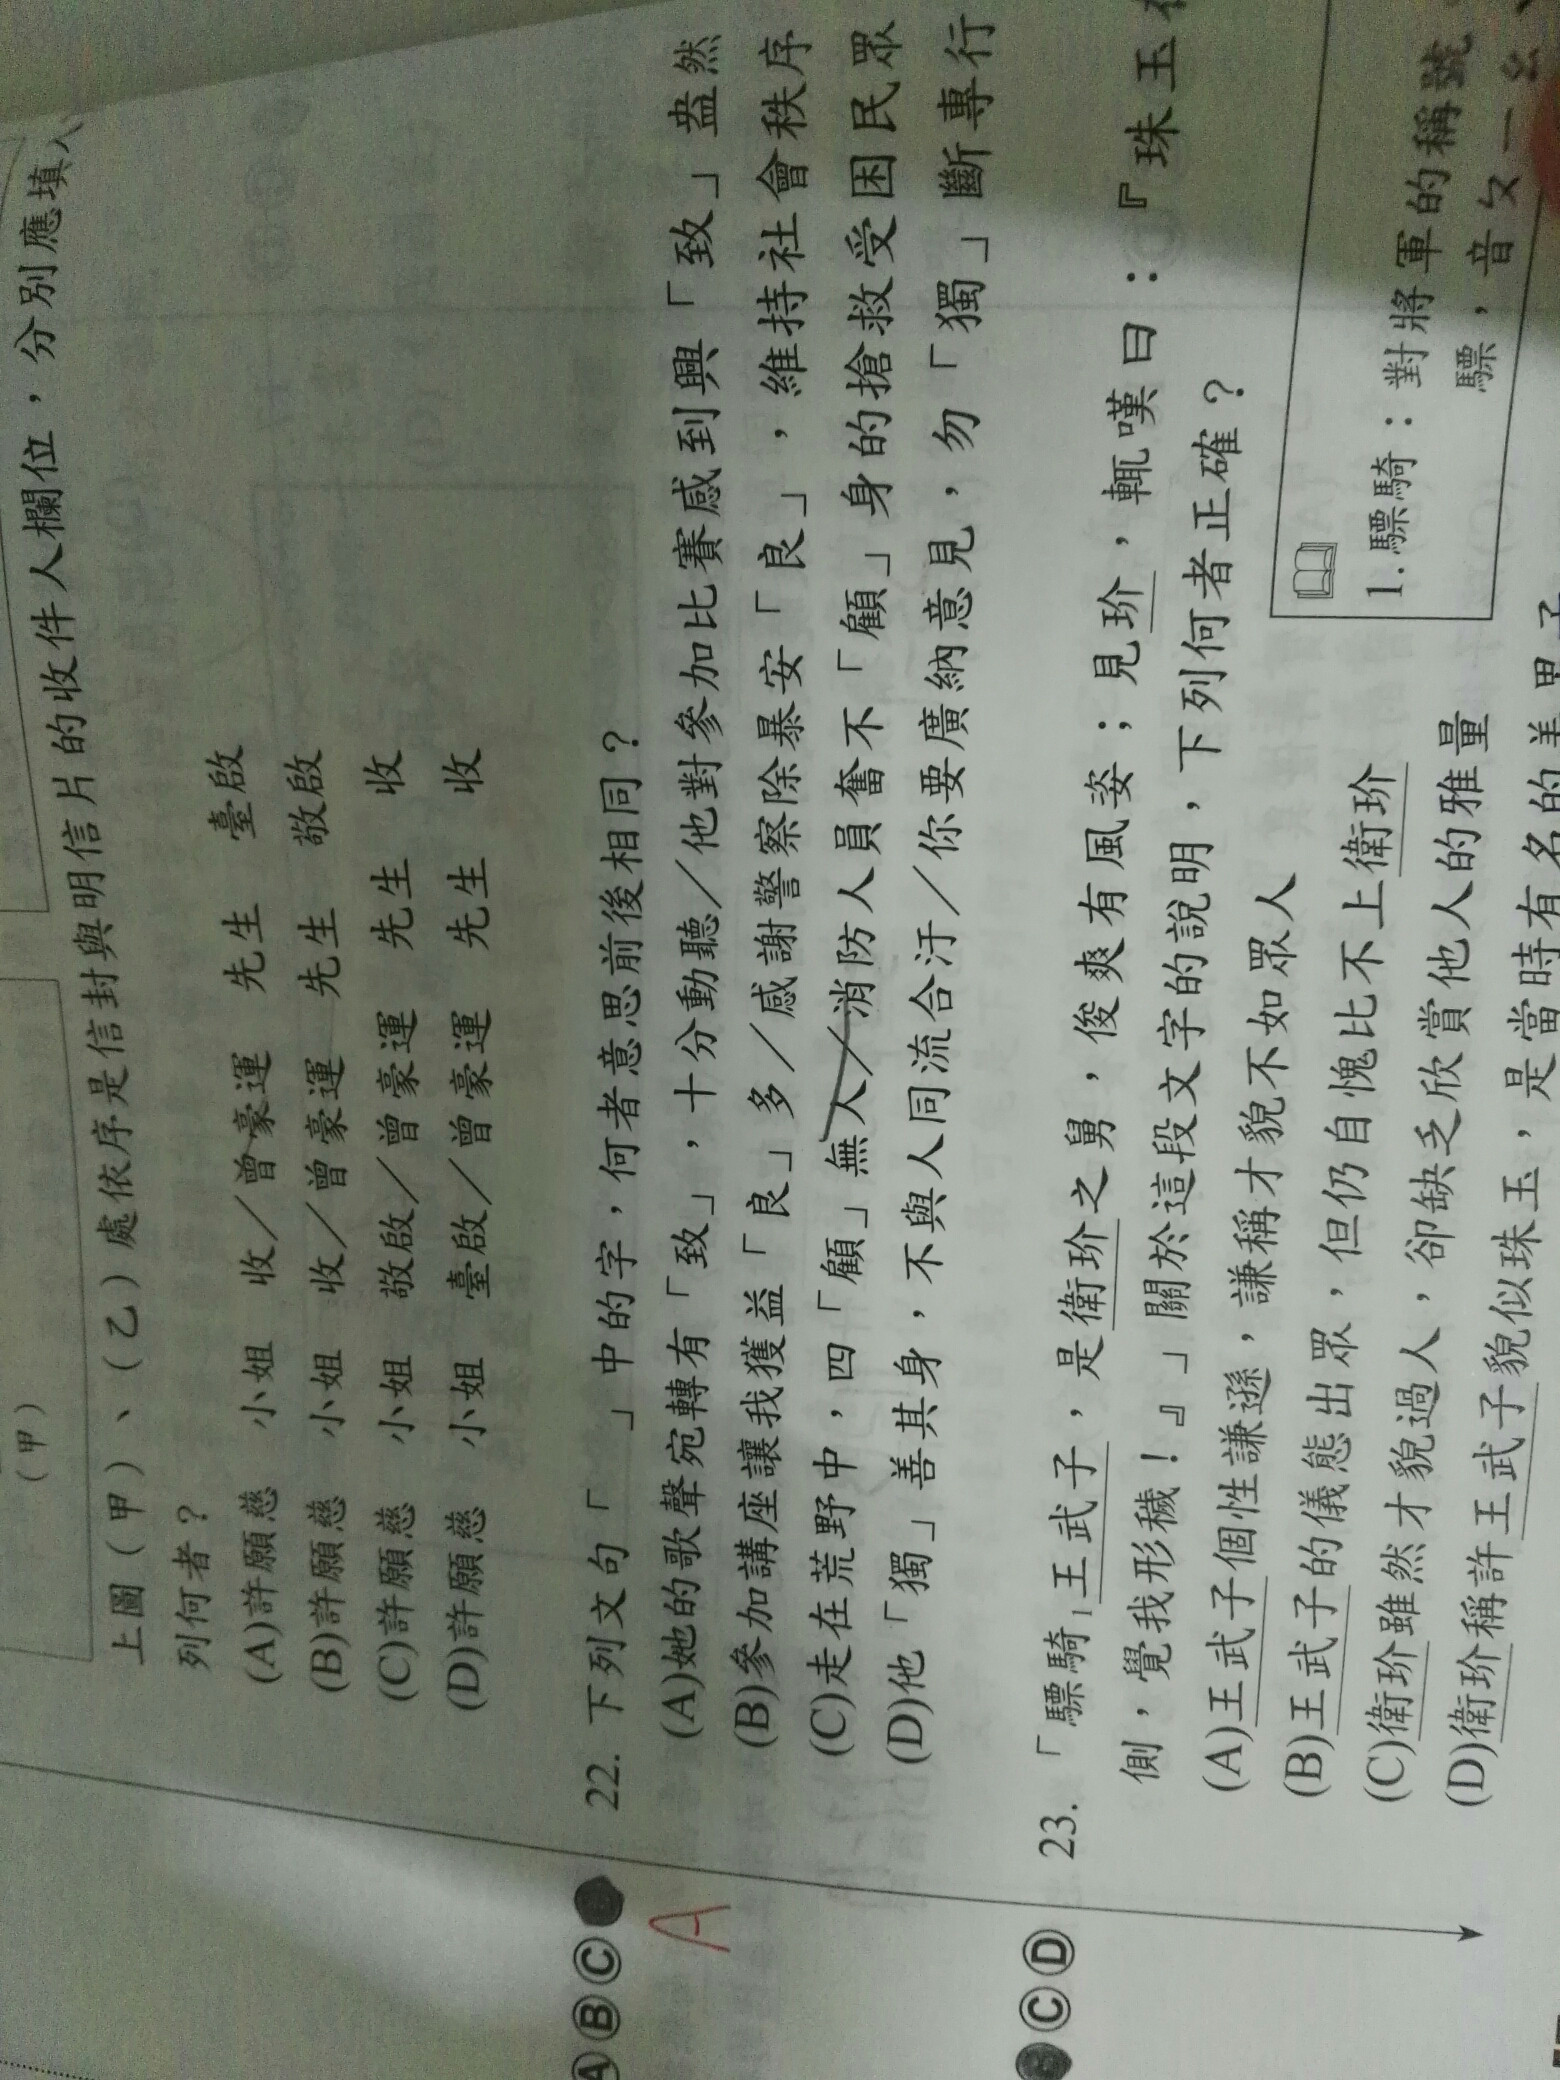 （甲）
上圖（甲）、（乙）處依序是信封與明信片的收件人欄位，分別應填入
列何者？
(A)許願慈　小姐　收／曾豪運　先生　臺啟
(B)許願慈　小姐　收／曾豪運　先生　敬啟
(C)許願慈　小姐　敬啟／曾豪運　先生　收
(D)許願慈　小姐　臺啟／曾豪運　先生　收
ⒶⒷⒸ
A
22. 下列文句「　」中的字，何者意思前後相同？
(A)她的歌聲宛轉有「致」，十分動聽／他對參加比賽感到興「致」盎然
(B)參加講座讓我獲益「良」多／感謝警察除暴安「良」，維持社會秩序
(C)走在荒野中，四「顧」無人／消防人員奮不「顧」身的搶救受困民眾
(D)他「獨」善其身，不與人同流合汙／你要廣納意見，勿「獨」斷專行
ⒸⒹ
23. 「驃騎1王武子，是衛玠之舅，俊爽有風姿；見玠，輒嘆曰：『珠玉在
側，覺我形穢！』」關於這段文字的說明，下列何者正確？
(A)王武子個性謙遜，謙稱才貌不如眾人
(B)王武子的儀態出眾，但仍自愧比不上衛玠
(C)衛玠雖然才貌過人，卻缺乏欣賞他人的雅量
(D)衛玠稱許王武子貌似珠玉，是當時有名的美男子
1.驃騎：對將軍的稱號
驃，音ㄆㄧㄠ